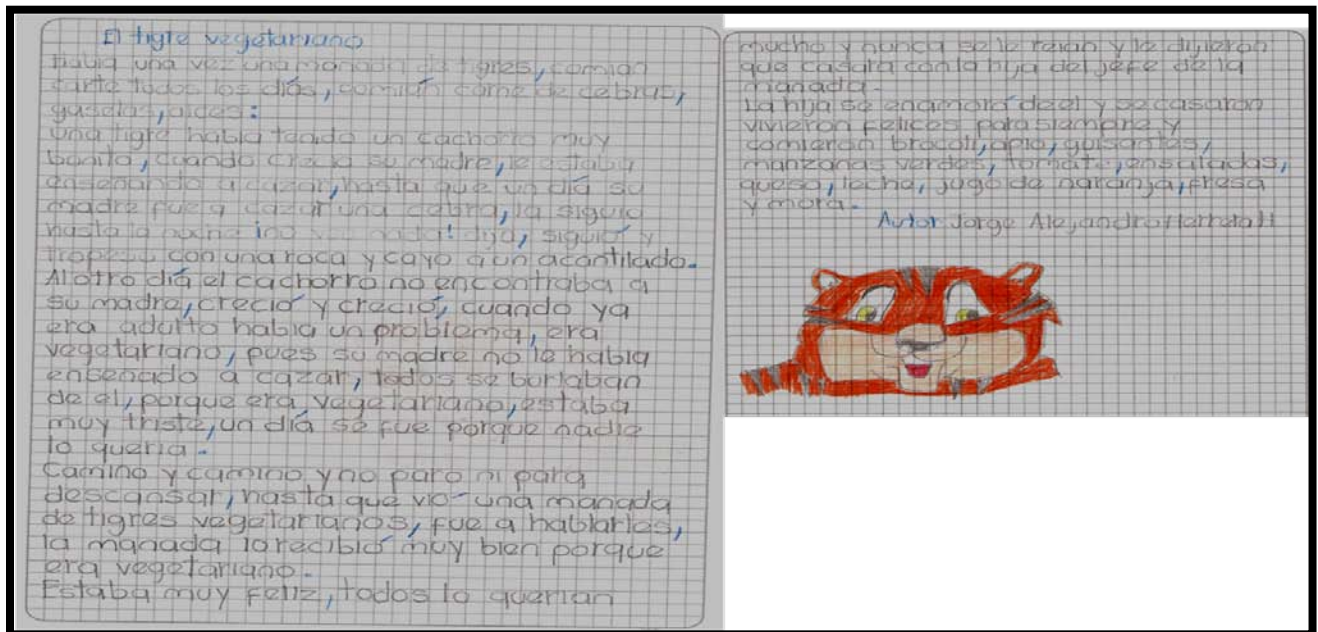 El tigre vegetariano
Habia una vez una manada de tigres, comian
carne todos los días, comían carne de cebras,
gaselas, alces:
una tigre habia tenido un cachorro muy
bonito, cuando crecia su madre, le estaba
enseñando a cazar, hasta que un día su
madre fue a cazar una cebra, la siguio
hasta la ¡no nada! dijo, siguió y
tropezo con una roca y cayo a un acantilado.
Al otro día el cachorro no encontraba a
su madre, creció y creció, cuando ya
era adulto habia un problema, era
vegetariano, pues su madre no le habia
ensenado a cazar, todos se burlaban
de el, porque era vegetariano, estaba
muy triste, un día se fue porque nadie
lo queria.
Camino y camino y no paro ni para
descansar, hasta que vio una manada
de tigres vegetarianos, fue a hablarles,
la manada lo recibió muy bien porque
era vegetariano.
Estaba muy feliz, todos lo querian
mucho y nunca se le reian y le dijieron
que casara con la hija del jefe de la
manada.
La hija se enamoró de el y se casaron
vivieron felices para siempre y
comieron brocoli, apio, guisantes,
manzanas verdes, tomate, ensaladas,
queso, leche, jugo de naranja, fresa
y mora.
Autor Jorge Alejandro Herrera H